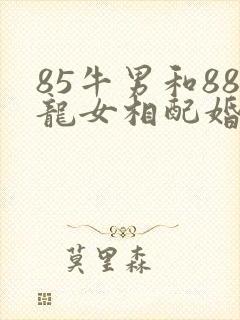 85牛男和88
龍女相配婚
莫里森